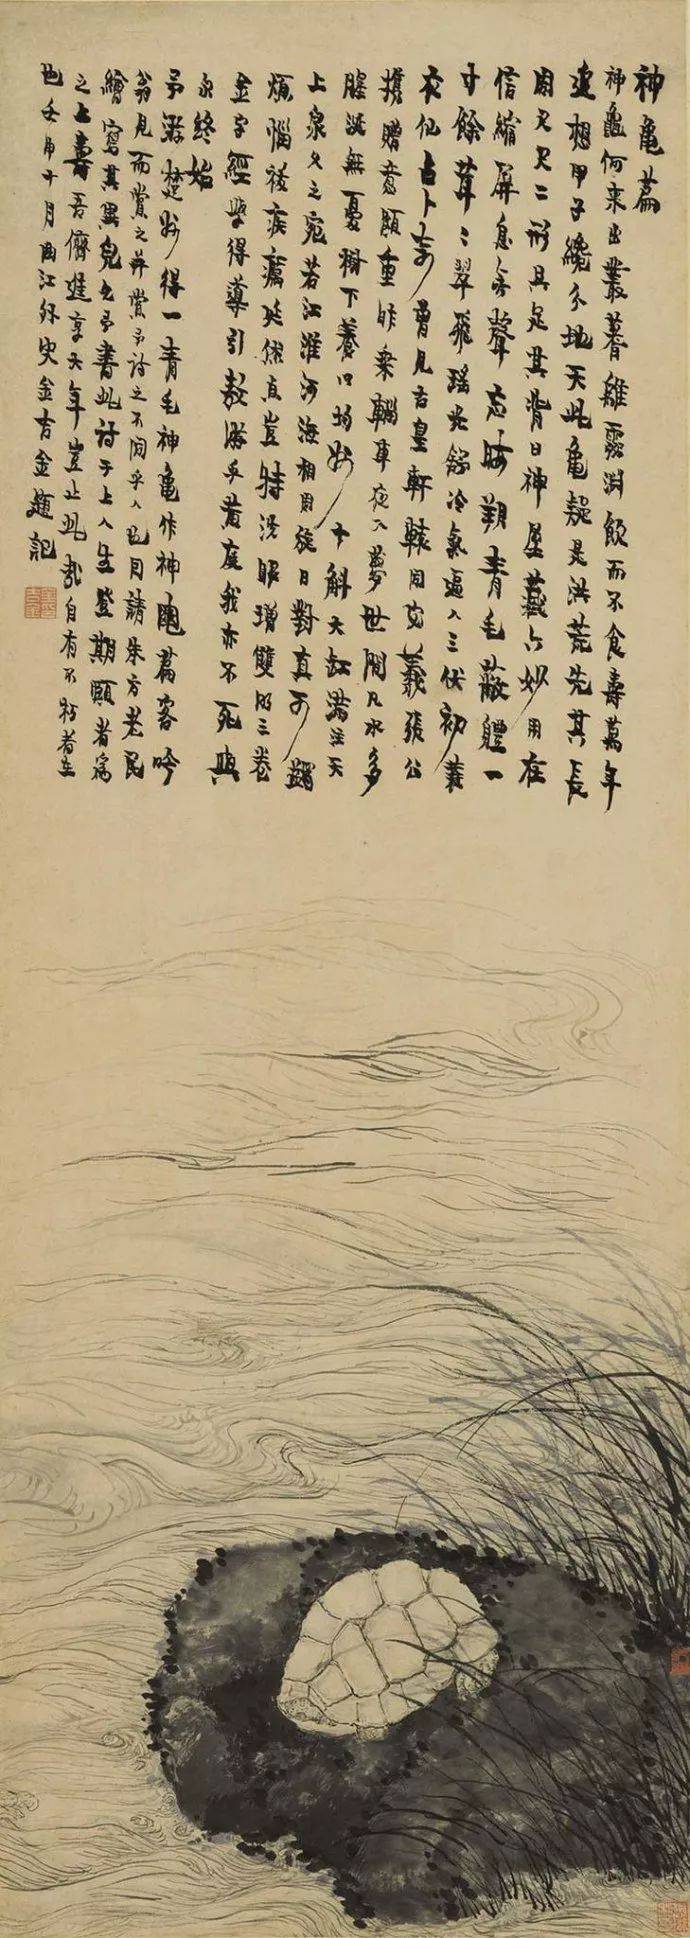 神龜篇
神龜何來出叢蓍離靈淵飲而不食壽萬年
遠想甲子纔分地天此龜疑是洪荒先其長
周尺尺二形具足其背曰神屋藏六妙用在
信縮屏息無聲忘晦朔青毛蔽體一
寸餘茸〻翠飛瑤光冷氣逼人三伏初蓑
衣仙占卜吉曾見古皇軒轅同宓羲張公
攜贈意頗重昨乘輜車夜入夢世間凡水多
腥涎無憂樹下養十斛大缸滿注天
上泉久之宛若江淮河海相周旋日對真可蠲
煩惱袪疾癘延豈特洗眼增雙明三卷
金字經學得導引敖游乎黃庭我亦不死與
永終始
予游楚州得一青毛神龜作神龜篇客吟
翁見而賞之并賞予詩之不同乎人也因請朱方老民
繪寫其異皃乞予書此詩于上人生登期頤者為
之上壽吾儕享大年豈止此哉自有不朽者在
也壬申十月曲江外史金吉金題記